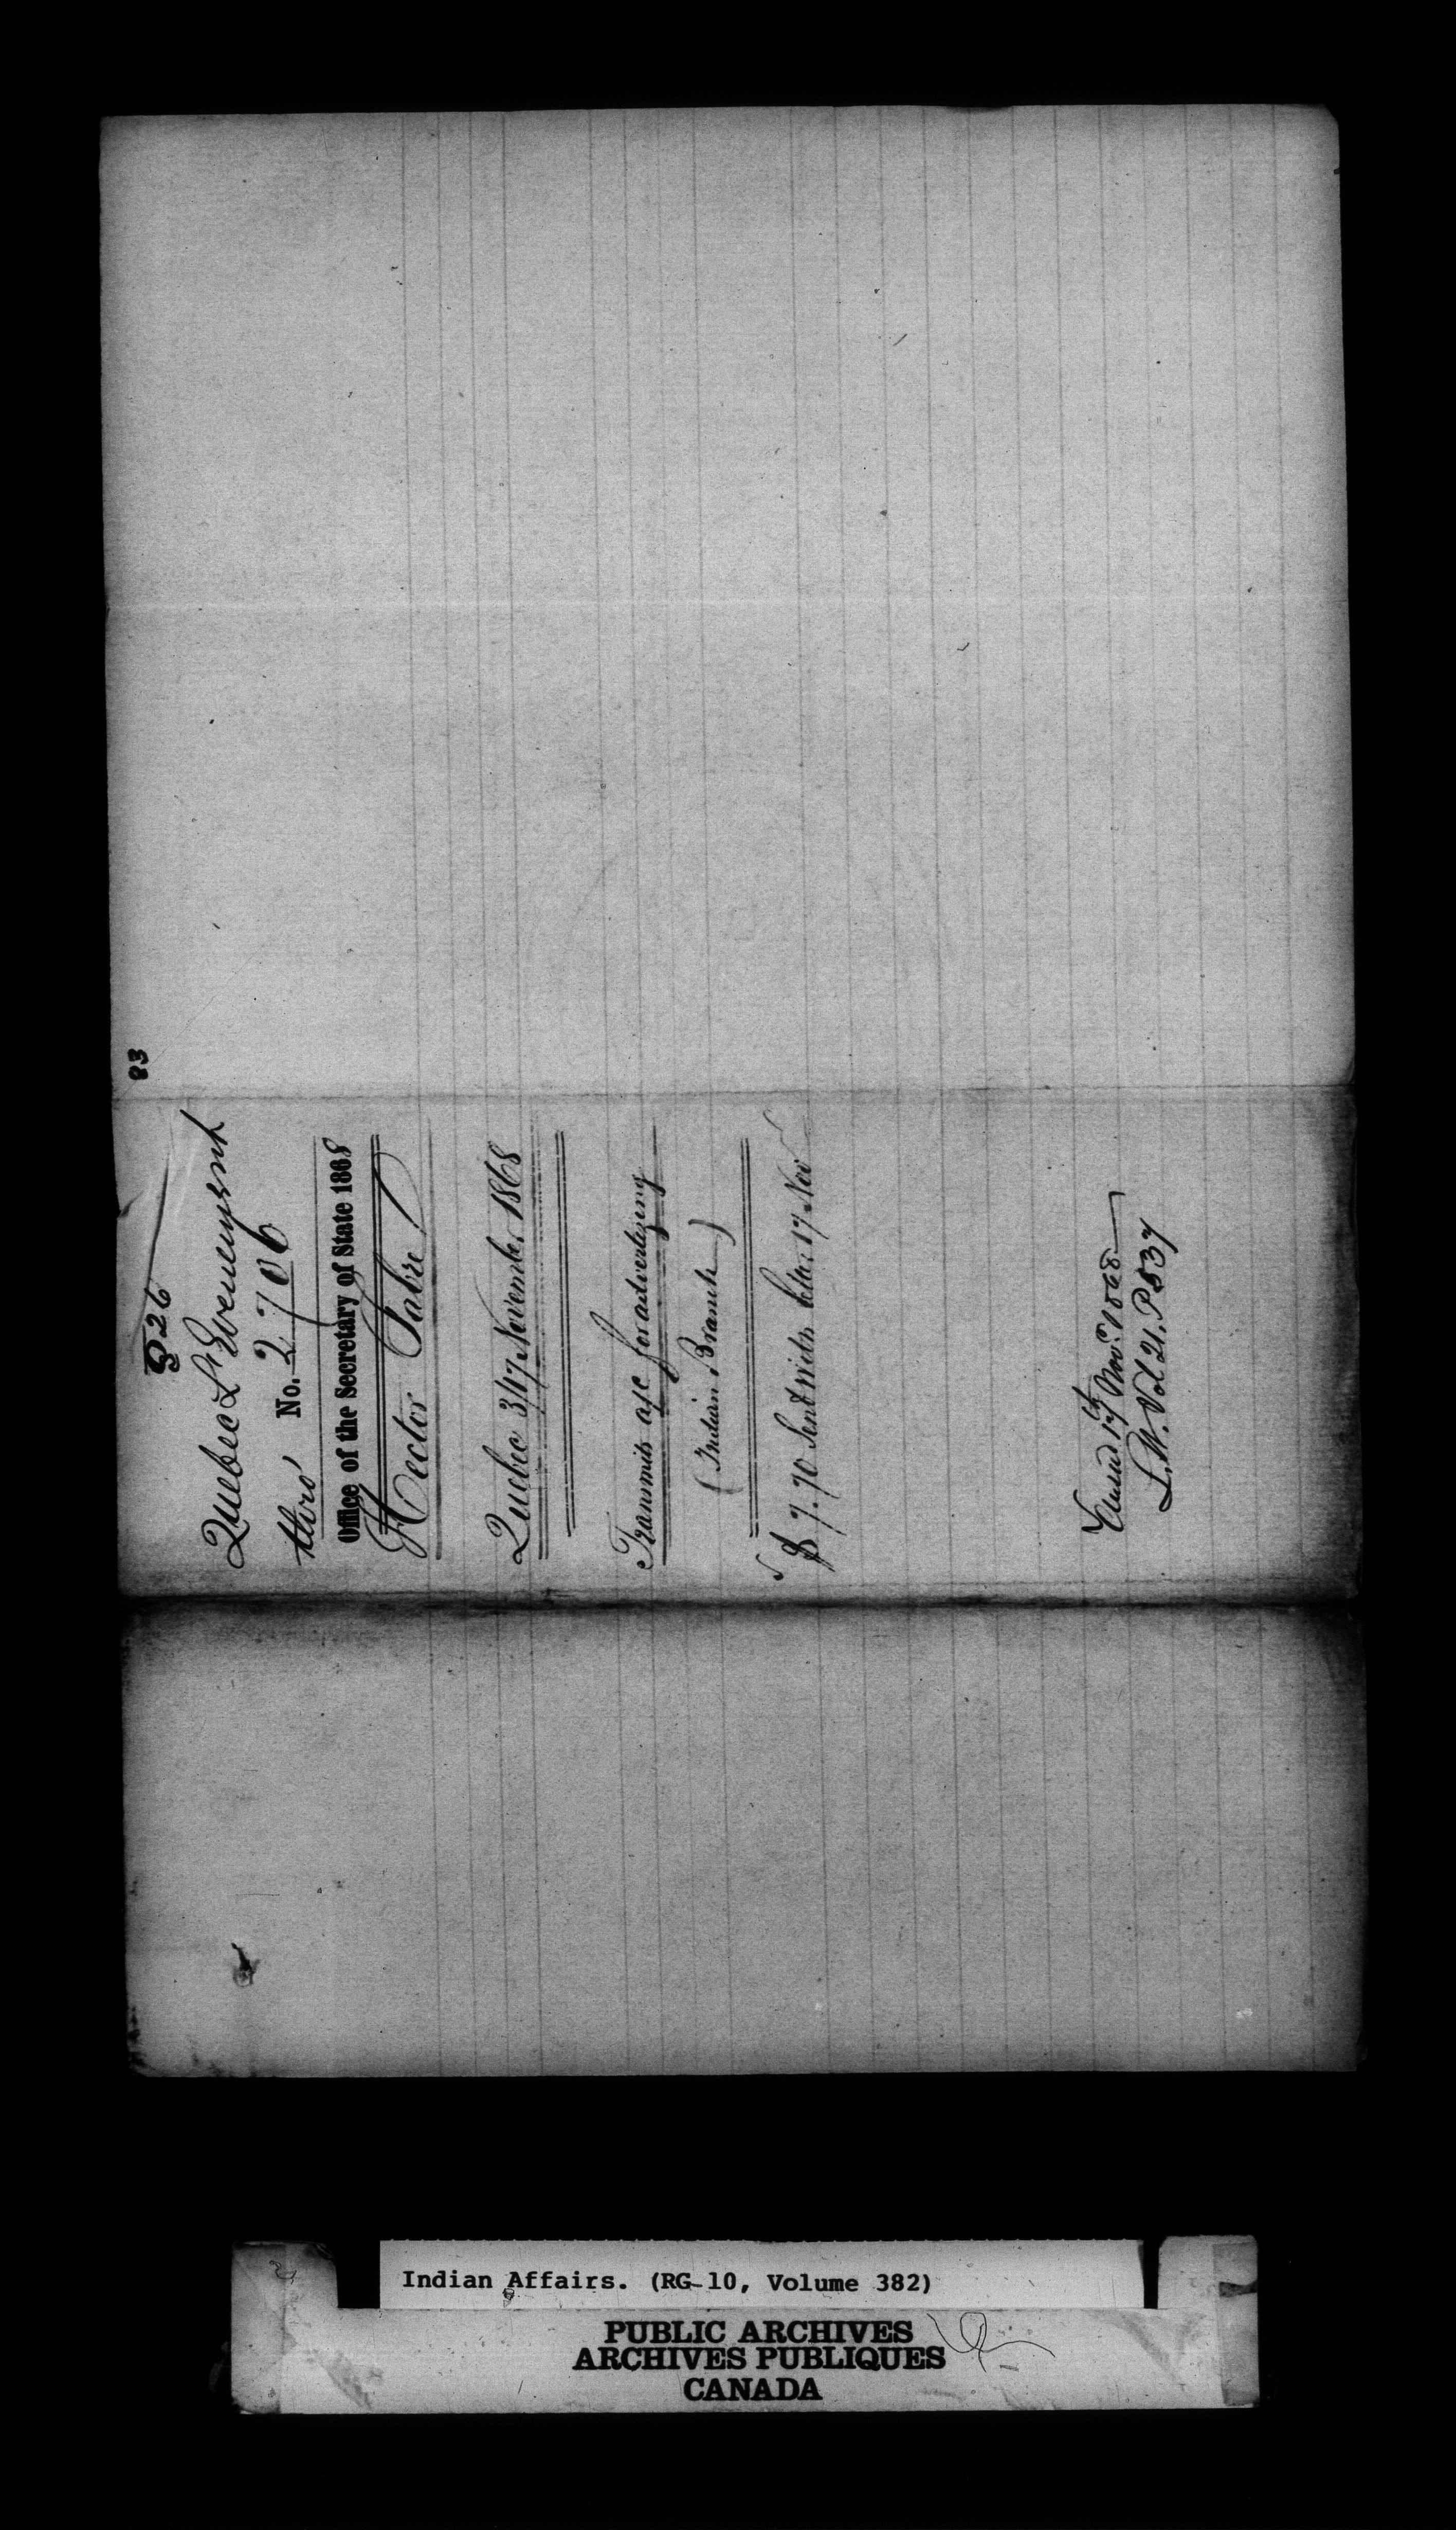 83
Q 26
Quebec L'Evenement
No. 2706
Office of the Secretary of State 1868
Hector Fabre
Quebec 3/17 November 1868
Transmits a/c for advertizing
(Indian Branch)
$7.70 Sent with letter 17 Nov
17th Novr. 1868
L.W. Vol 21. P 537
Indian Affairs. (RG-10, Volume 382)
PUBLIC ARCHIVES
ARCHIVES PUBLIQUES
CANADA